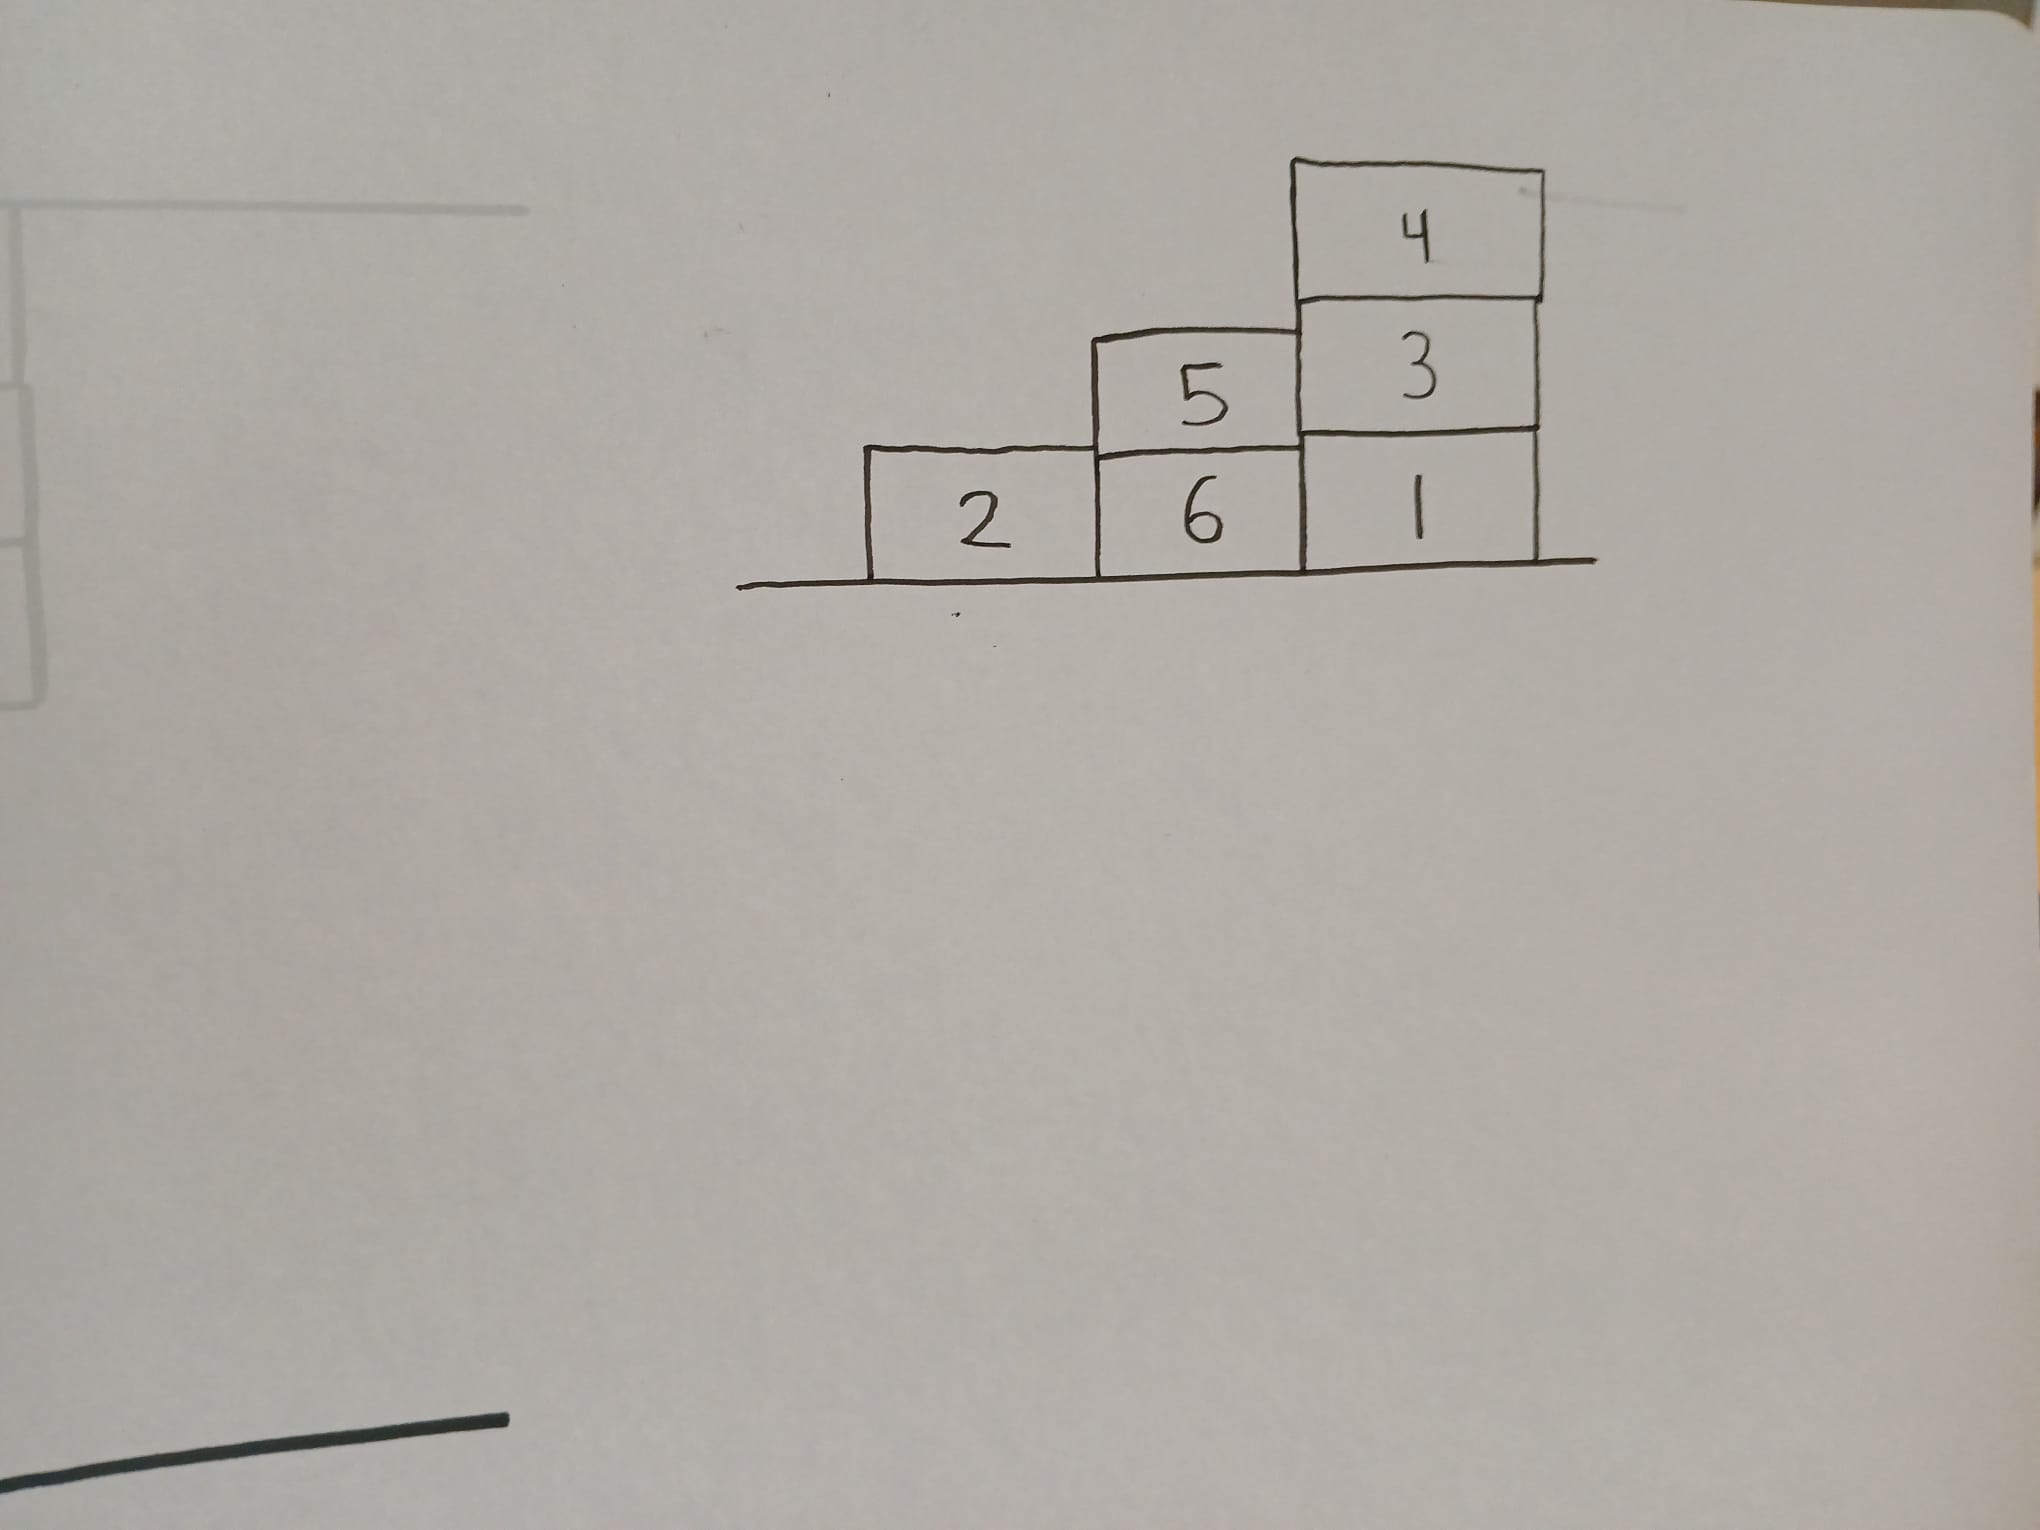 4
5 3
2 6 1